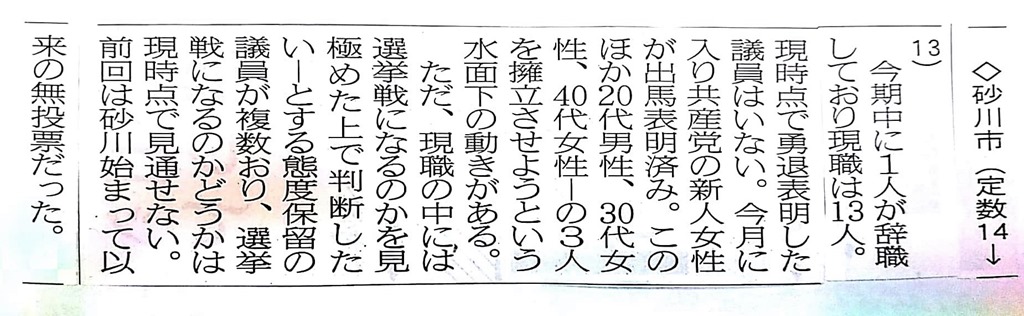 ◇砂川市（定数14→
13）
今期中に１人が辞職
しており現職は13人。
現時点で勇退表明した
議員はいない。今月に
入り共産党の新人女性
が出馬表明済み。この
ほか20代男性、30代女
性、40代女性―の３人
を擁立させようという
水面下の動きがある。
ただ、現職の中には
選挙戦になるのかを見
極めた上で判断した
い―とする態度保留の
議員が複数おり、選挙
戦になるのかどうかは
現時点で見通せない。
前回は砂川始まって以
来の無投票だった。